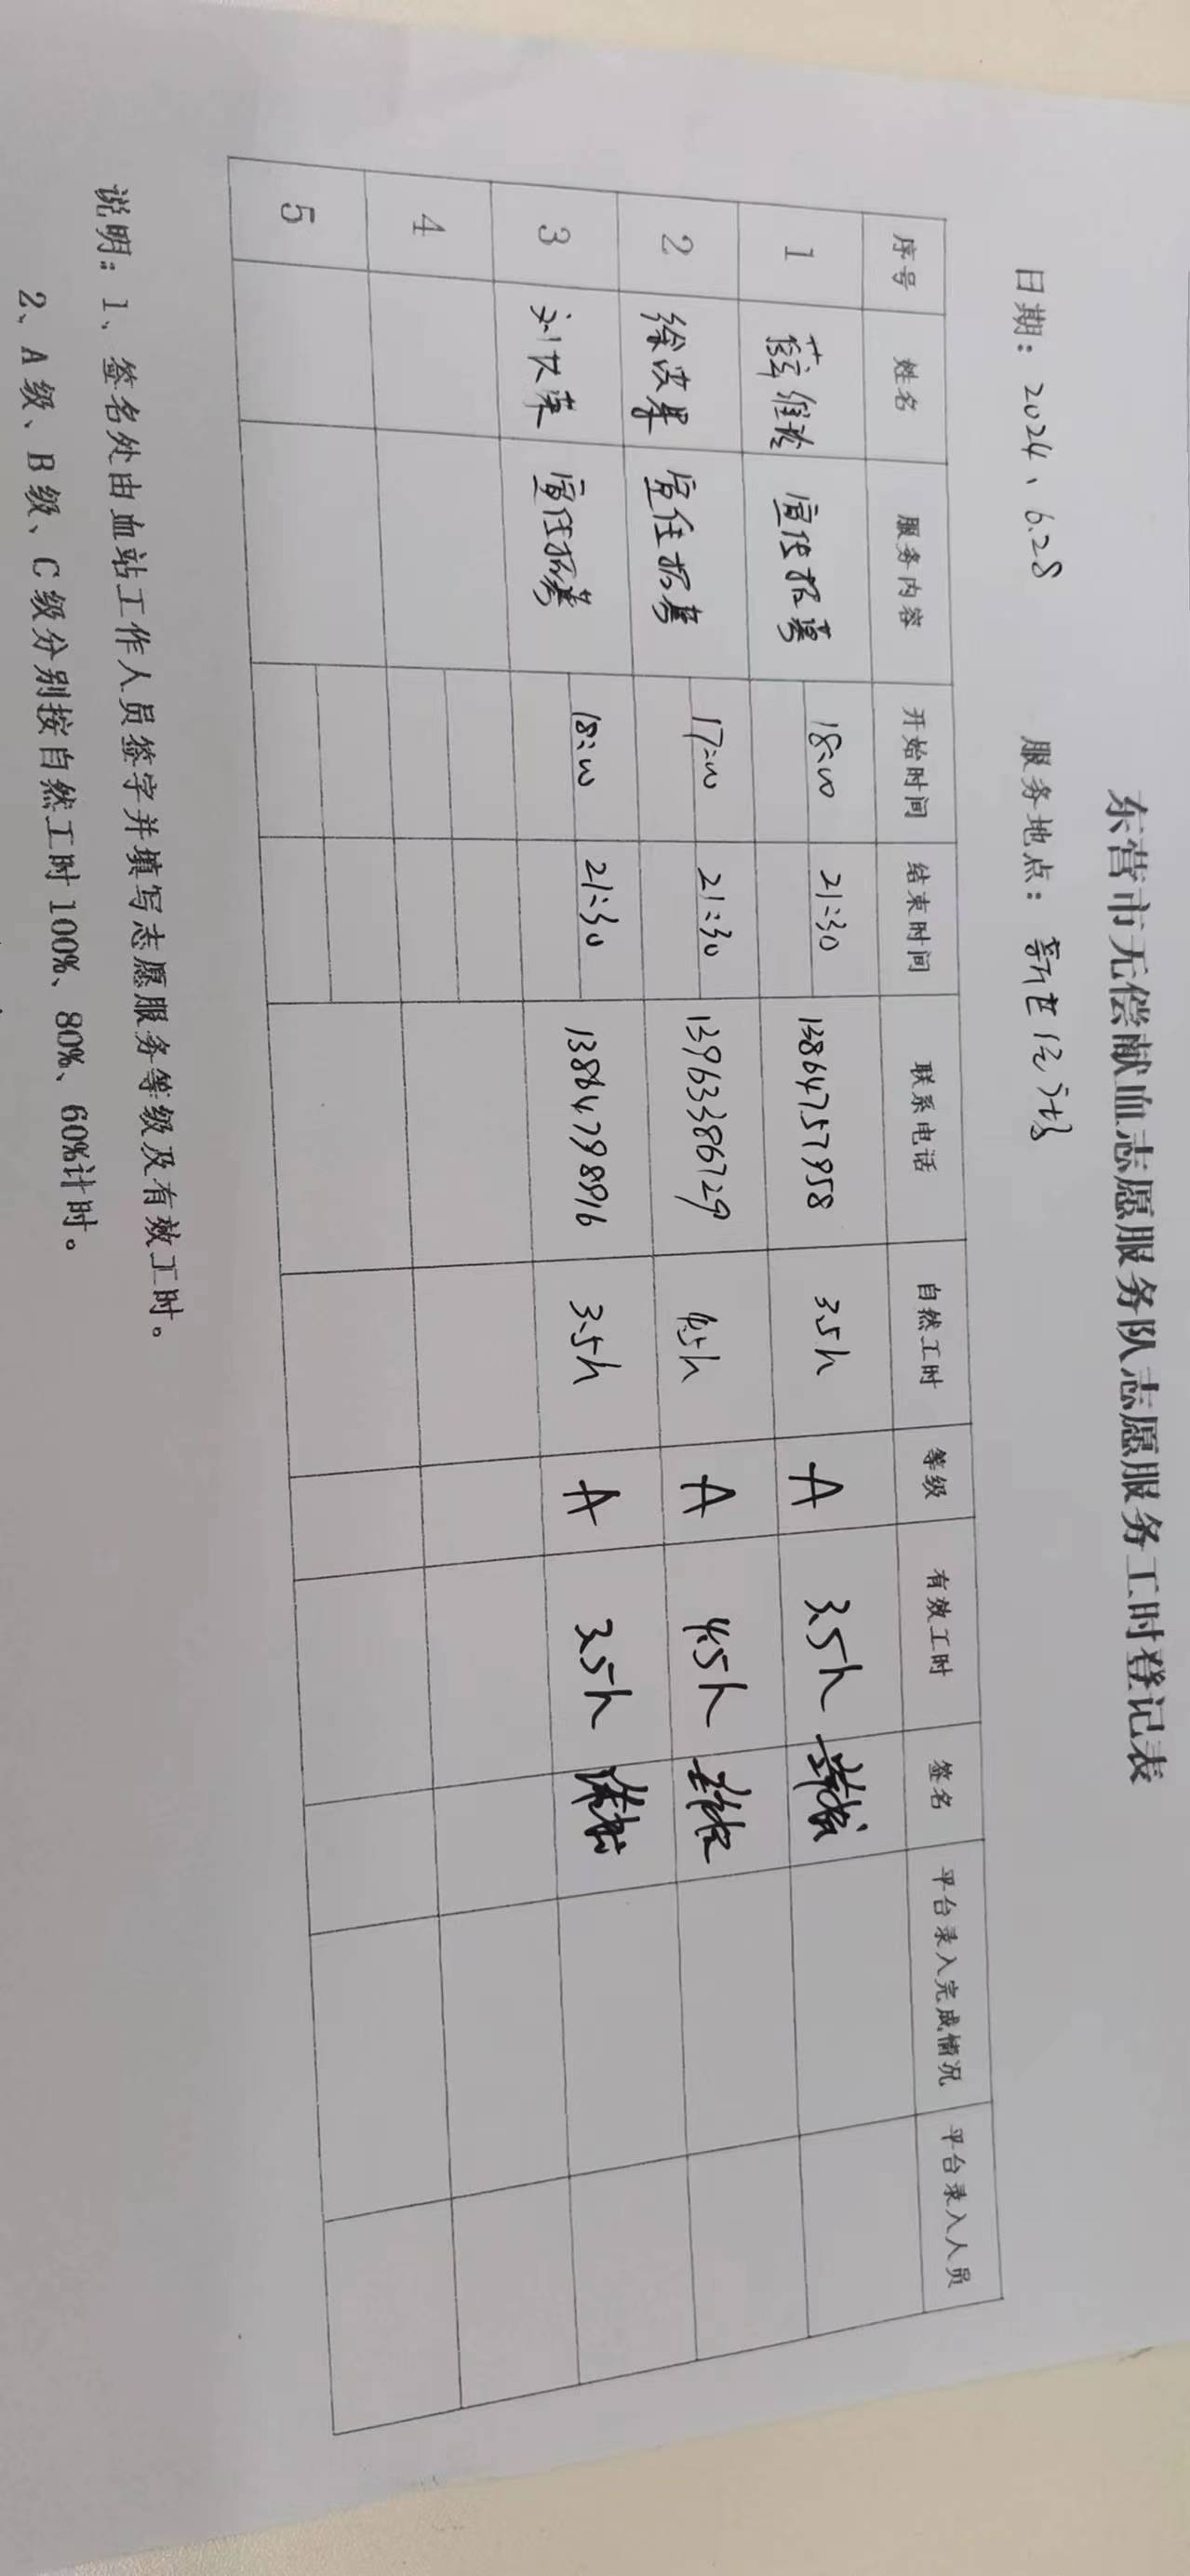 东营市无偿献血志愿服务队志愿服务工时登记表
日期：2024、6.28 服务地点：新世纪广场
序号 姓名 服务内容 开始时间 结束时间 联系电话 自然工时 等级 有效工时 签名 平台录入完成情况 平台录入人员
1 薛维 宣传招募 18:00 21:30 13864757958 3.5h A 3.5h
2 徐 宣传招募 17:00 21:30 13963386729 4.5h A 4.5h
3 刘 宣传招募 18:00 21:30 13864798916 3.5h A 3.5h
4
5
说明：1、签名处由血站工作人员签字并填写志愿服务等级及有效工时。
2、A级、B级、C级分别按自然工时100%、80%、60%计时。